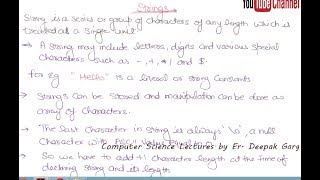 YouTube
Channel
Strings
String is a series or group of characters of any length which is
treated all a single unit
→ A string may include letters, digits and various special
characters such as -, +, * and $.
for eg " Hello" is a literal or string constants
→ Strings can be stored and manipulation can be done as
array of characters.
→ The last character in string is always '\0', a null
Computer Science Lectures by Er- Deepak Garg
character with ASCII value
→ So we have to add +1 character length at the time of
declaring string and its length